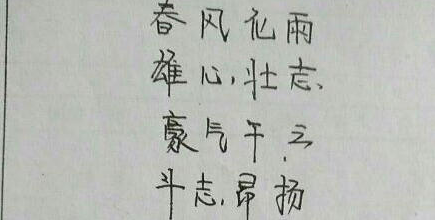 春风化雨
雄心,壮志、
豪气干云
斗志,昂扬